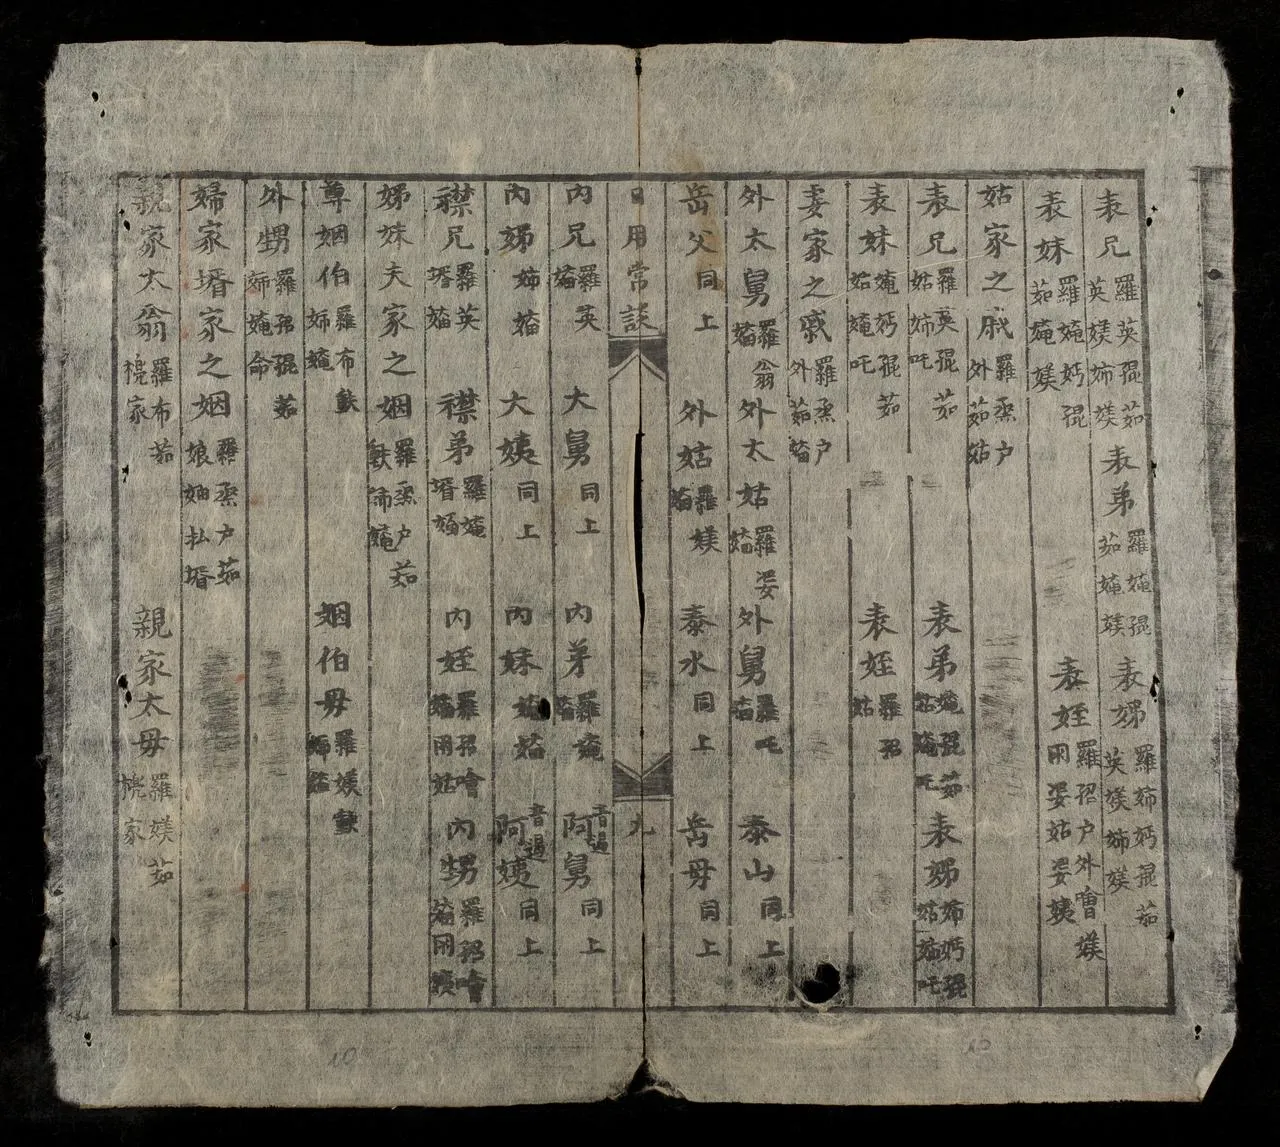 表兄羅英𡥵茹英媄姉媄 表弟羅㛪𡥵茹㛪媄 表姊羅姉𡛔𡥵茹英媄姉媄
表妹羅㛪𡛔𡥵茹㛪媄 表姪羅𡥙户外噲媄用姿姑姿姨
姑家之戚羅烝户外茹姑
表兄羅英𡥵茹姑姉吒 表弟㛪𡥵茹姑㛪吒 表姊姉𡛔𡥵姑㛪吒
表妹㛪𡛔𡥵茹姑㛪吒 表姪羅𡥙姑
妻家之戚羅烝户外茹𡞕
外太舅羅翁𡞕 外太姑羅姿𡞕 外舅羅吒𡞕 泰山同上
岳父同上 外姑羅媄𡞕 泰水同上 岳母同上
日用常談 九
内兄羅英𡞕 大舅同上 内弟羅㛪𡞕 阿音過舅同上
内姊姉𡞕 大姨同上 内妹㛪𡞕 阿音過姨同上
襟兄羅英壻𡞕 襟弟羅㛪壻𡞕 内姪羅𡥙噲𡞕用姑 内甥羅𡥙噲𡞕用姨
姊妹夫家之姻羅烝户茹𫯳姉㛪
尊姻伯羅布𫯳姉㛪 姻伯母羅媄𫯳姉㛪
外甥羅𡥙𡥵茹姉㛪命
婦家壻家之姻羅烝户茹娘妯払壻
親家太翁羅布茹家 親家太母羅媄茹家
10